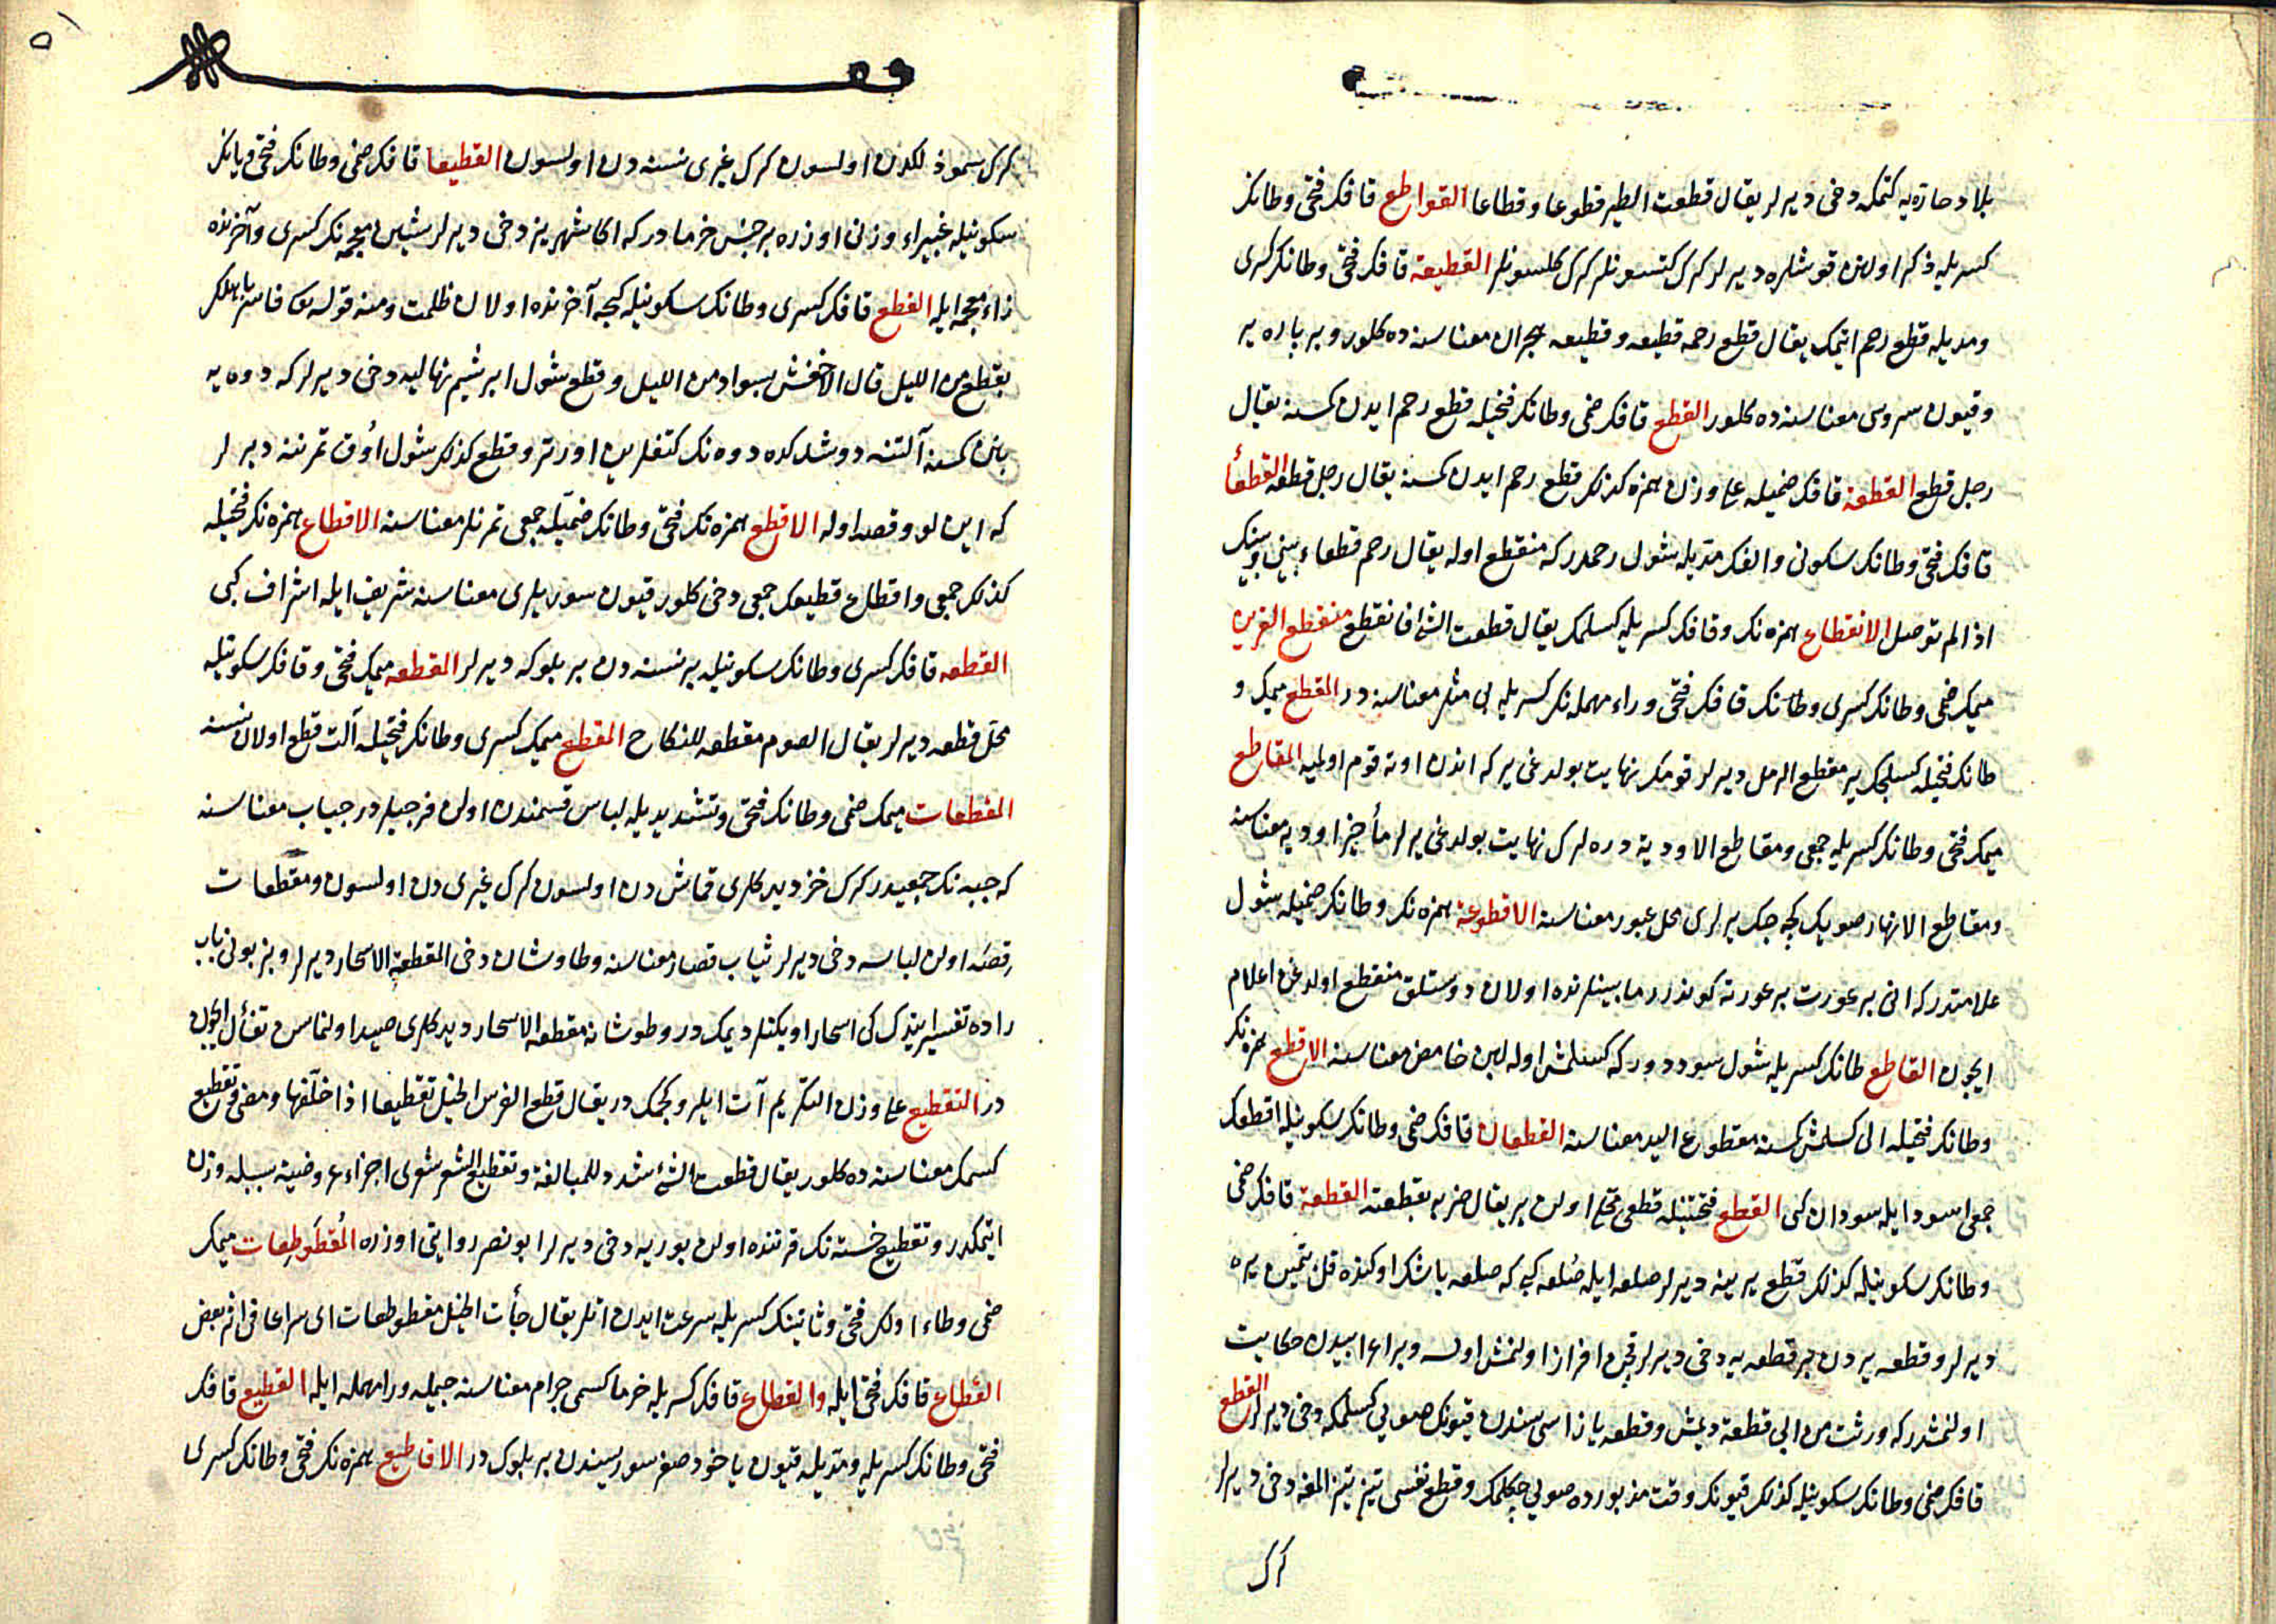 بلاد حارّه‌يه كتمكه دخى ديرلر يقال قطعت الطير قطوعا وقطاعا القواطع قافك فتحى وطانك
كسريله ذكر اولنن قوشلره ديرلر كرك كتسونلر كرك كلسونلر القطيعة قافك فتحى وطانك كسرى
ومديله قطع رحم ايتمك يقال قطع رحمه قطيعه وقطيعه هجران معناسنده كلور وبر پاره ير
وقيون سروسى معناسنده كلور القطع قافك ضمى وطانك فتحيله قطع رحم ايدن كمسنه يقال
رجل قطع القطعة قافك ضميله على وزن همزه كذلك قطع رحم ايدن كمسنه يقال رجل قطعه القطعأ
قافك فتحى وطانك سكونى والفك مديله شول رحمدر كه منقطع اوله يقال رحم قطعاء بينى وبينك
اذا لم توصل الانقطاع همزه‌نك وقافك كسريله كسلمك يقال قطعت الشئ فانقطع منقطع القرين
ميمك ضمى وطانك كسرى وطانك قافك فتحى وراء مهمله‌نك كسريله بى مثل معناسنه در المقطع ميمك و
طانك فتحيله كسيلجك ير مقطع الرمل ديرلر قومك نهايت بولدغى ير كه اندن اوته قوم اولميه المقاطع
ميمك فتحى وطانك كسريله جمعى ومقاطع الاودية دره‌لرك نهايت بولدغى يرلر مأخيز اوديه معناسنه
ومقاطع الانهار صويك كچه‌جك يرلرى محل عبور معناسنه الاقطوعة همزه‌نك وطانك ضميله شول
علامتدر كه انى بر عورت بر عورته كوندرر مابينلرنده اولان دوستلق منقطع اولدغن اعلام
ايچون القاطع طانك كسريله شول سوددر كه كسلمش اوله لبن خامض معناسنه الاقطع همزه‌نك
وطانك فتحيله الى كسلمش كمسنه مقطوع اليد معناسنه القطعان قافك ضمى وطانك سكونيله اقطعك
جمعى اسود ايله سودان كبى القطع فتحتينله قطعى محل اولن ير يقال ضربه بقطعته القطعة قافك ضمى
وطانك سكونيله كذلك قطع يرينه ديرلر صلعه ايله صُلعه كبى كه صلعه باشك اوكنده قل بتمين يره
ديرلر وقطعه يردن بر قطعه‌يه دخى ديرلر قچن افراز اولنمش اوله وبر اعرابيدن حكايت
اولنمشدر كه ورثت من ابى قطعة ديمش وقطعه ياز اسى‌سندن قيونك صويى كسلمكه دخى ديرلر القطع
قافك ضمى وطانك سكونيله كذلك قيونك وقت مزبورده صويى چكلمك وقطع نفسى تيز تيز المغه دخى ديرلر
كرك
كرك سموذلكدن اولسون كرك غيرى نسنه‌دن اولسون القطيعا قافك ضمى وطانك فتحى ويانك
سكونيله غبيراء وزنى اوزره بر جنس خرما در كه اكا شهريز دخى ديرلر شين معجمه‌نك كسرى وآخرنده
زاء معجمه ايله القطع قافك كسرى وطانك سكونيله كيجه آخرنده اولان ظلمت ومنه قوله تع فاسر باهلك
بقطع من الليل قال الاخفش بسواد من الليل وقطع شول ابرشيم نهاليه دخى ديرلر كه دوه‌يه
بنن كمسنه آلتنه دوشك‌ده دوه‌نك كتفلرين اورتر وقطع كذلك شول اوق تمرننه ديرلر
كه اين‌لو وقصه اوله الاقطع همزه‌نك فتحى وطانك ضميله جمعى تمرنلر معناسنه الاقطاع همزه‌نك فتحيله
كذلك جمعى واقطاع قطيعك جمعى دخى كلور قيون سوريلرى معناسنه شريف ايله اشراف كبى
القطعه قافك كسرى وطانك سكونيله بر نسنه‌دن بر بلوكه ديرلر المقطعه ميمك فتحى وقافك سكونيله
محل قطعه ديرلر يقال الصوم مقطعه للنكاح المقطع ميمك كسرى وطانك فتحيله آلت قطع اولان نسنه
المقطعات ميمك ضمى وطانك فتحى وتشديديله لباس قسمندن اولن فرجيلردر جباب معناسنه
كه جبه‌نك جمعيدر كرك خز ديدكلرى قماش‌دن اولسون كرك غيرى‌دن اولسون ومقطعات
قصه اولن لباسه دخى ديرلر ثياب قصار معناسنه وطاوشان دخى المقطعة الاسحار ديرلر وبز بونى باب
راده تفسير ايتدك كى اسحار اويكنلر ديمك‌در وطوشانه مقطعه الاسحار ديدكلرى صيد اولنماسن تفأل ايچون
در التقطيع على وزن التكريم آت ايلرو كچمك‌در يقال قطع الفرس الخيل تقطيعا اذا خلّفها ومضى وتقطيع
كسمك معناسنده كلور يقال قطعت الشئ شدد للمبالغة وتقطيع الشعر شعرى اجزاء عروضيه سببيله وزن
ايتمكدر وتقطيع خسته‌نك قرننده اولن بوريه دخى ديرلر ابو نصر روايتى اوزره المُقطَوطِعات ميمك
ضمى وطاء اولك فتحى وثانينك كسريله سرعت ايدن اتلر يقال جأت الخيل مقطوطعات اى سراعا فى اثر بعض
القَطاع قافك فتحى ايله والقطاع قافك كسريله خرما كسمى جرام معناسنه جيمله ورا مهمله ايله القطيع قافك
فتحى وطانك كسريله ومديله قيون ياخود صغر سوريسندن بر بلوك‌در الاقاطيع همزه‌نك فتحى وطانك كسرى